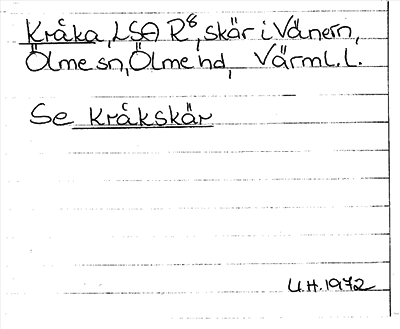 Kråka, LSA R⁸, skär i Vänern,
Ölme sn, Ölme hd, Värml. l.
Se Kråkskär
U.H. 1972